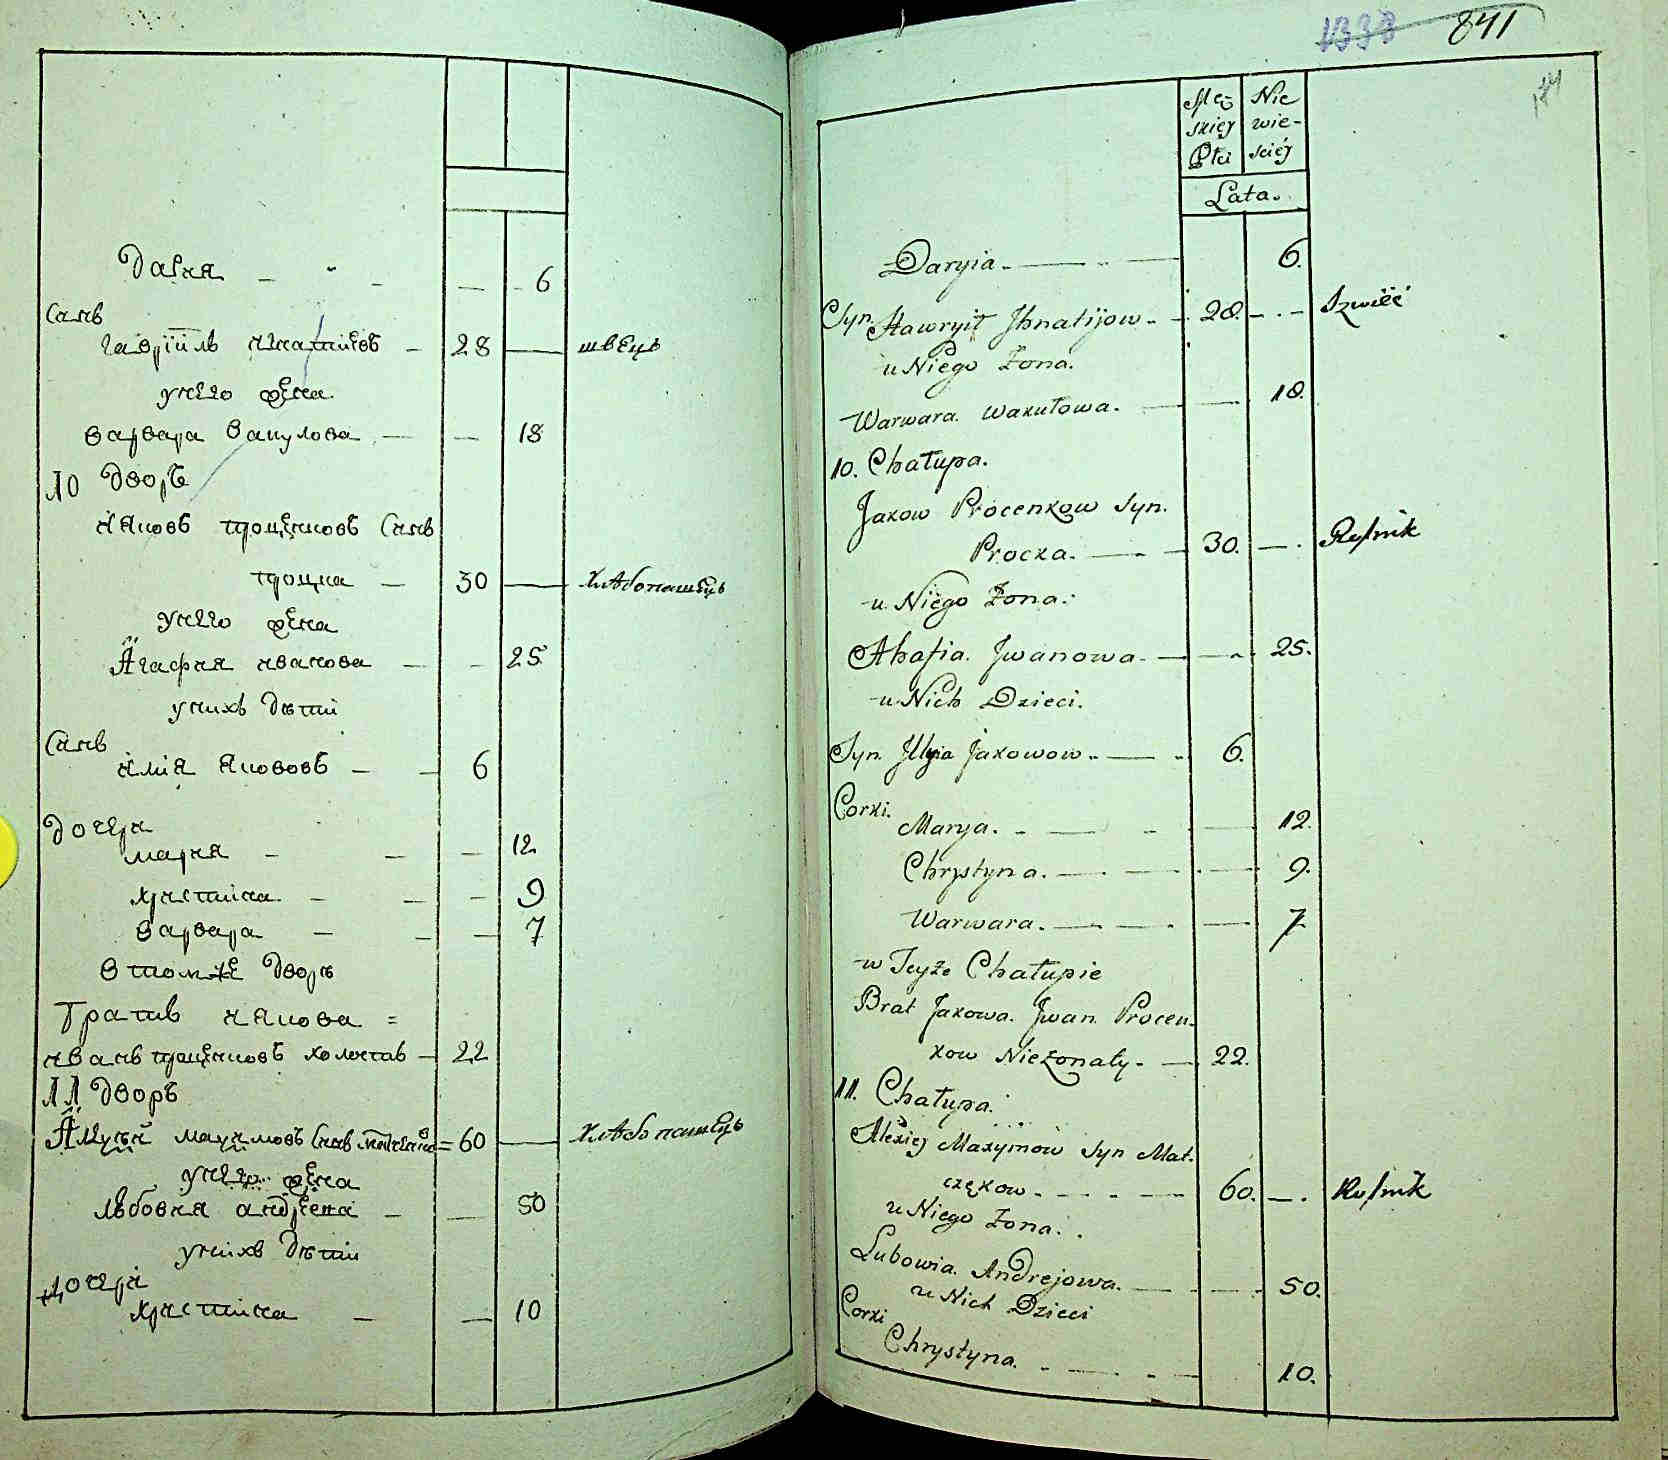 Дария — - — — - 6
Синъ
гавріилъ игнатіевъ — 28 — швецъ
унего жена
варвара вакулова — — 18
10 дворъ
иаковъ проценковъ Синъ
процка — 30 — хлѣбопашецъ
унего жена
Агафия иванова — - 25
унихъ дѣти
Синъ
илиа якововъ — — 6
дочери
мария - — — 12
христина - — - 9
варвара — — — 7
в томже дворѣ
братъ иакова =
иванъ проценковъ холостъ — 22
11 дворъ
Алексѣй максимовъ Синъ = 60 — хлѣбопашецъ
унего жена
любовия — — 50
унихъ дѣти
дочери
христина — — 10
1333 841
174
Mę- Nie
skiej wie-
Płci sciej
Lata.
Daryia. — - — 6.
Syn. Hawryił Jhnatijow - - 28. - — - Szwiec
u Niego Żona.
Warwara. Wakułowa. — — 18.
10. Chałupa.
Jakow Procenkow Syn.
Procka. — - — 30. — . Rolnik
u Niego Żona.
Ahafia. Jwanowa. — — - 25.
u Nich Dzieci.
Syn. Jllyia Jakowow. — - 6.
Corki.
Marya. - — - — 12.
Chrystyna. — - — - — 9.
Warwara. — - — — 7.
w Teyże Chałupie
Brat Jakowa. Jwan Procen-
kow Nieżonaty. — 22.
11. Chałupa.
Alexiej Maxymow Syn Mat-
czękow - - - — 60. — . Rolnik
u Niego Żona.
Lubowia. Andrejowa. — - — - 50.
u Nich Dzieci
Corki
Chrystyna. - — - — 10.